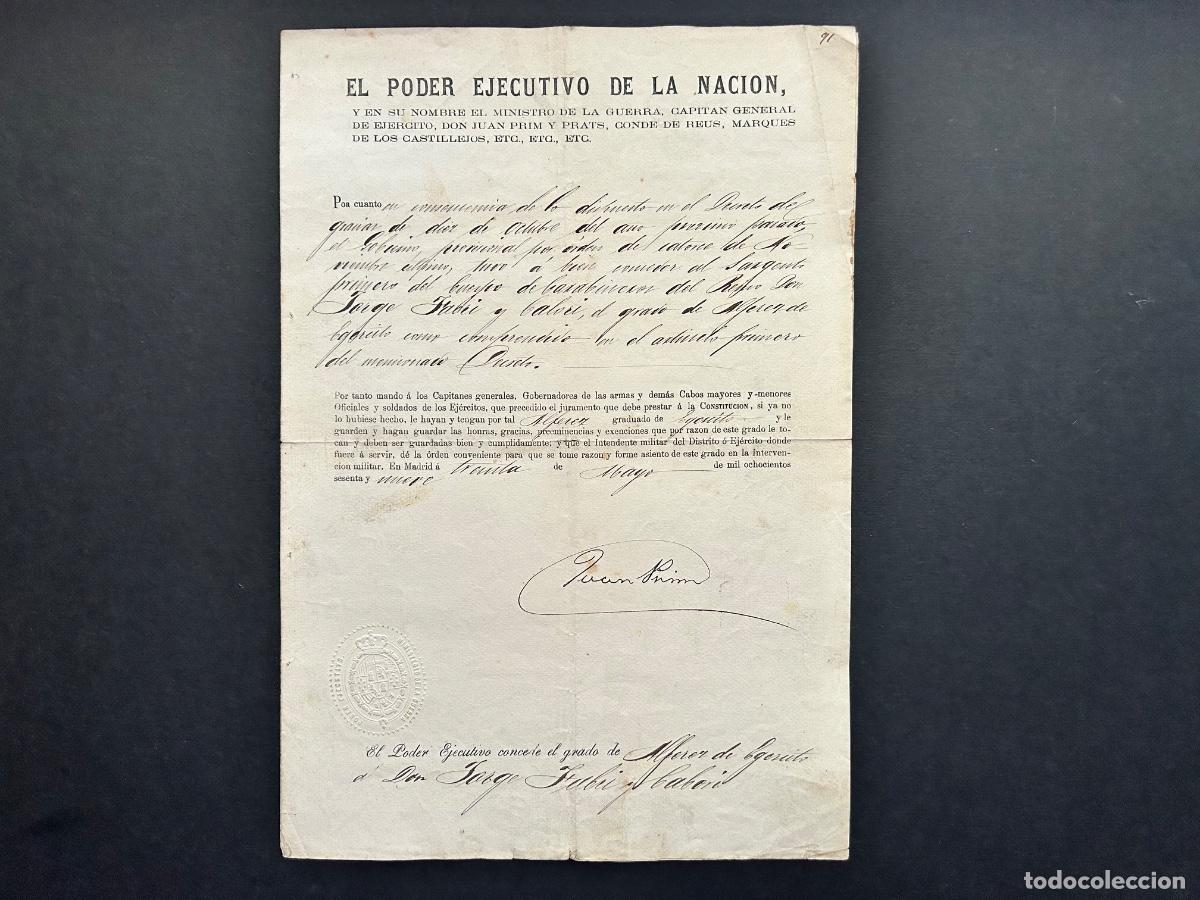 91
EL PODER EJECUTIVO DE LA NACION,
Y EN SU NOMBRE EL MINISTRO DE LA GUERRA, CAPITAN GENERAL
DE EJERCITO, DON JUAN PRIM Y PRATS, CONDE DE REUS, MARQUES
DE LOS CASTILLEJOS, ETC., ETC., ETC.
Poa cuanto en consecuencia de lo dispuesto en el Decreto de
gracias de diez de Octubre del año procsimo pasado,
el Gobierno, provisional por orden de catorce de No-
viembre ultimo, tuvo á bien conceder al Sargento
primero del Cuerpo de Carabineros del Reyno Don
Jorge y el grado de Alferez de
Egercito como comprendido en el articulo primero
del mencionado Decreto.
Por tanto mando á los Capitanes generales, Gobernadores de las armas y demás Cabos mayores y menores
Oficiales y soldados de los Ejércitos, que precedido el juramento que debe prestar á la CONSTITUCION, si ya no
lo hubiese hecho, le hayan y tengan por tal Alferez graduado de Egercito y le
guarden y hagan guardar las honras, gracias, preeminencias y exenciones que por razon de este grado le to-
can y deben ser guardadas bien y cumplidamente; y que el Intendente militar del Distrito ó Ejército donde
fuere á servir, dé la órden conveniente para que se tome razon y forme asiento de este grado en la Interven-
cion militar. En Madrid á treinta de Mayo de mil ochocientos
sesenta y nueve
Juan Prim
PODER EJECUTIVO MINISTERIO DE LA GUERRA
El Poder Ejecutivo concede el grado de Alferez de Egercito
á Don Jorge y
todocoleccion